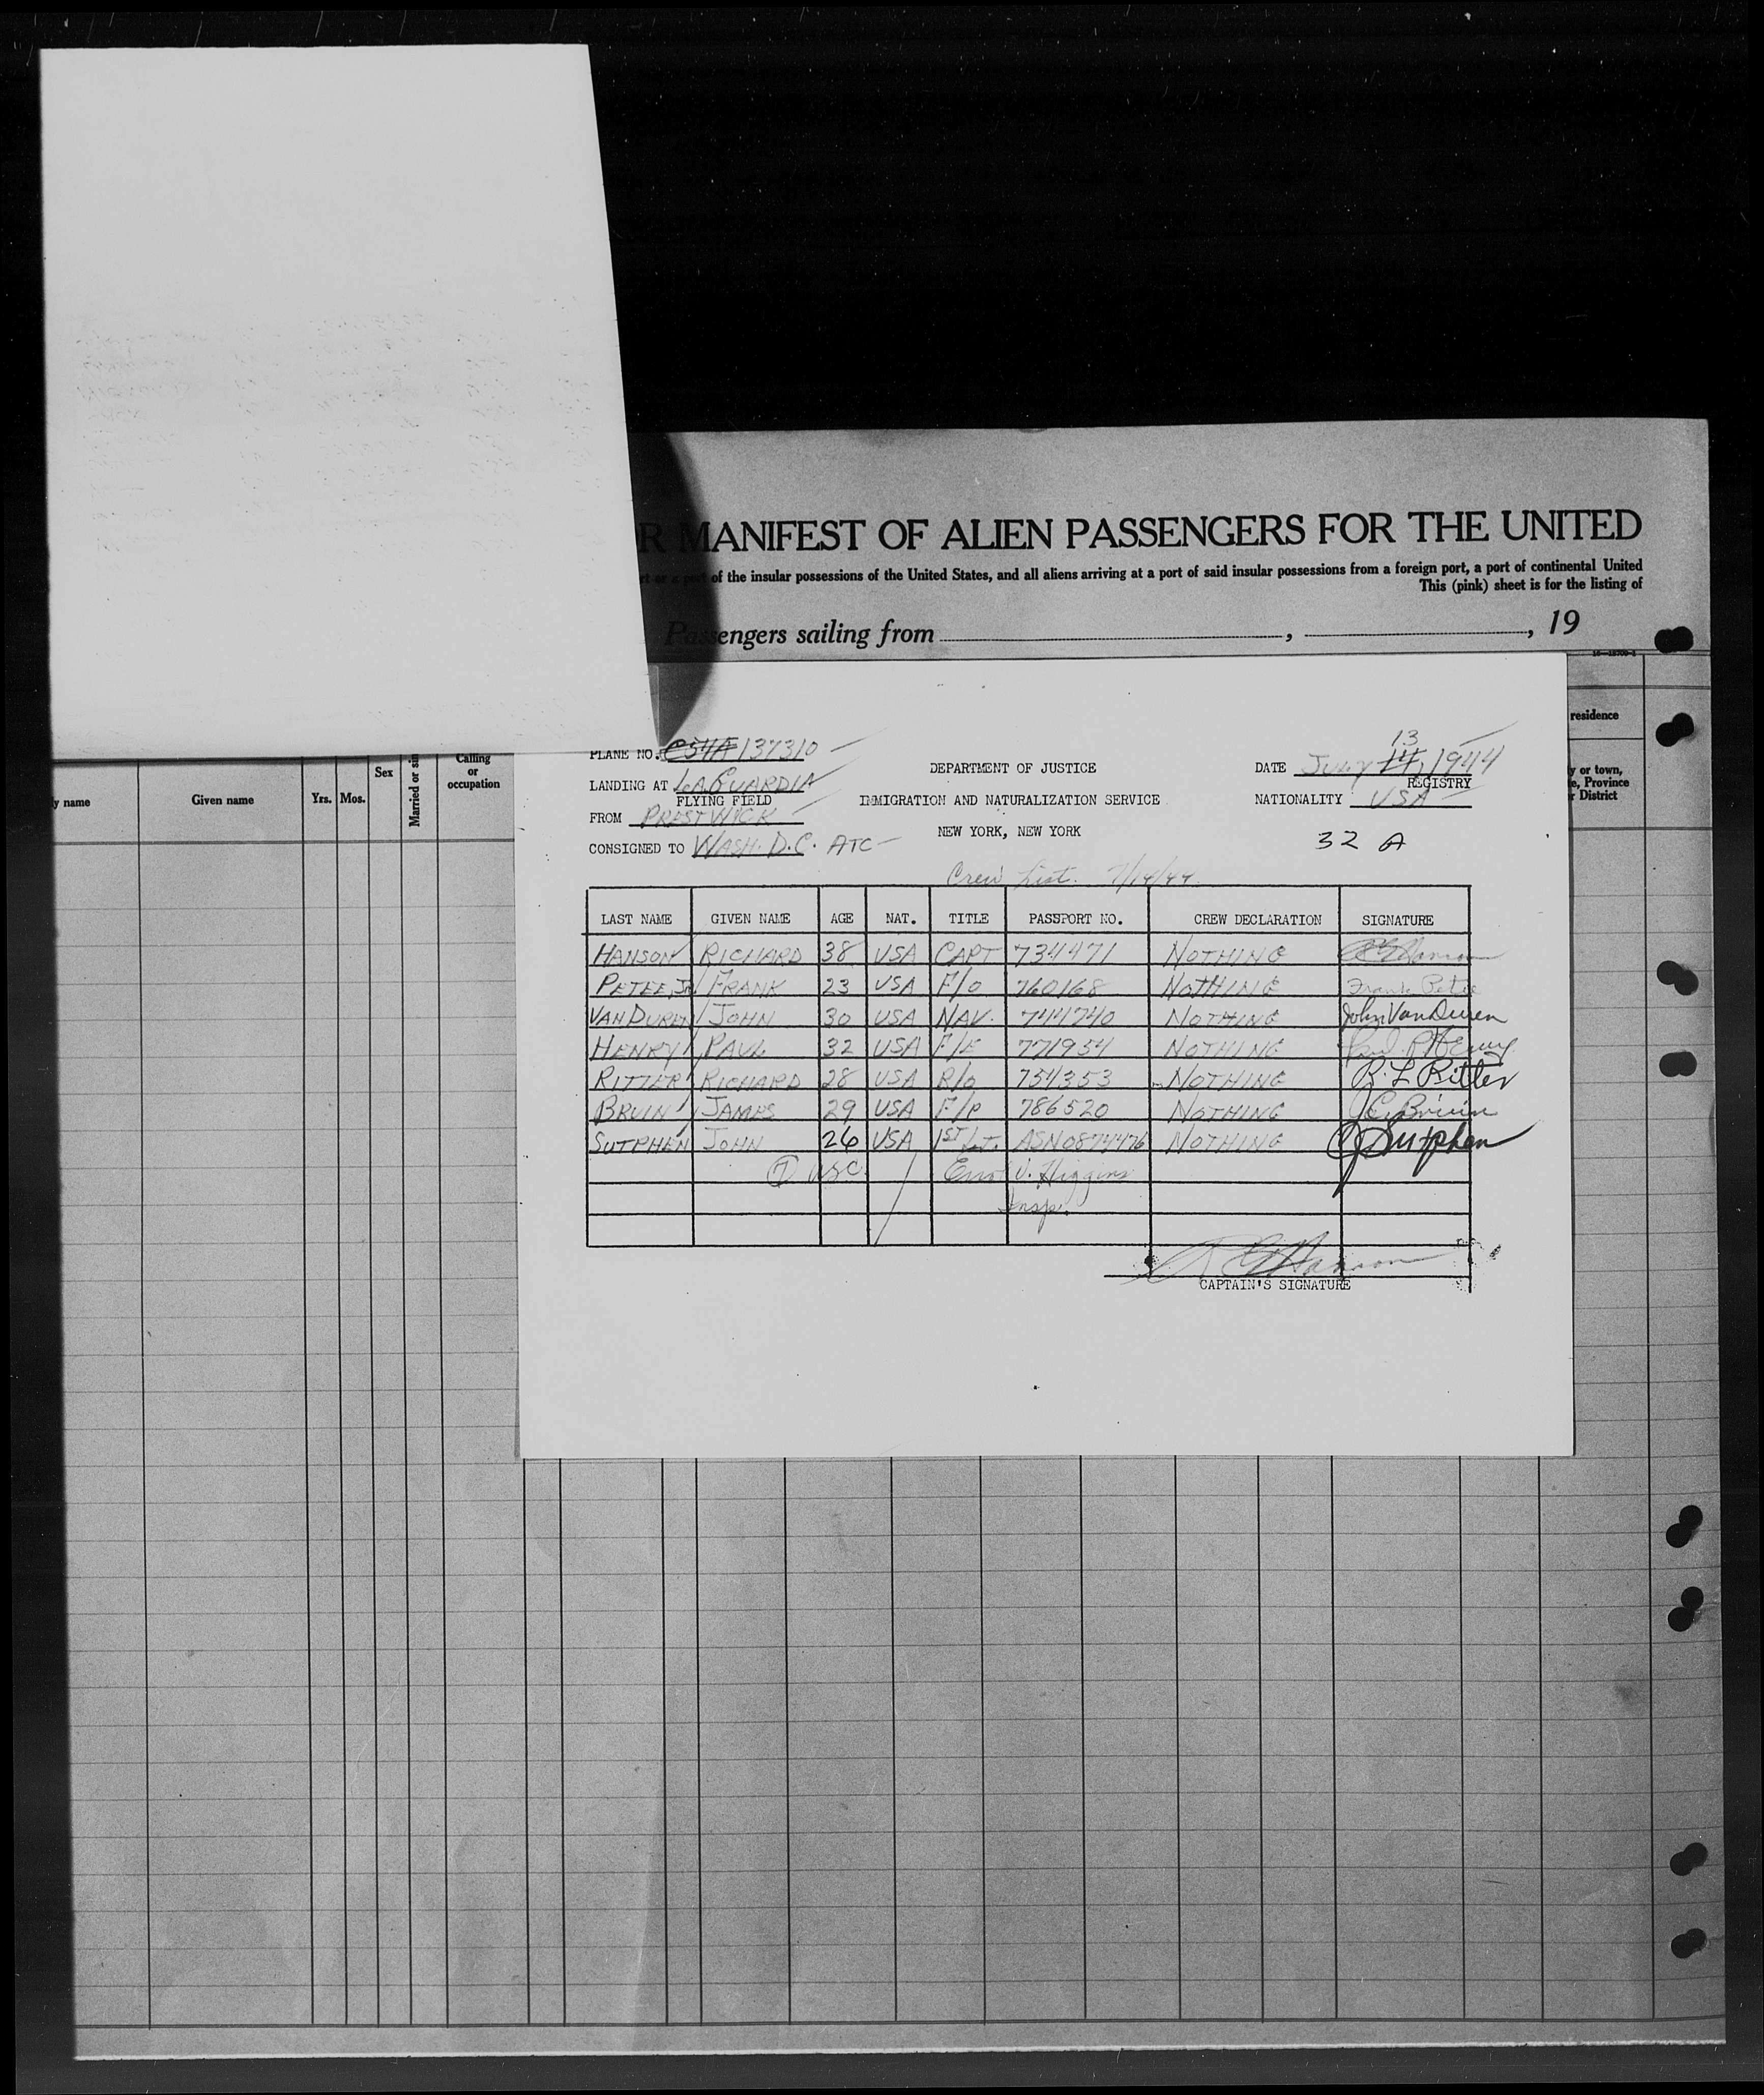 MANIFEST OF ALIEN PASSENGERS FOR THE UNITED
of the insular possessions of the United States, and all aliens arriving at a port of said insular possessions from a foreign port, a port of continental United
This (pink) sheet is for the listing of
Passengers sailing from , , 19
residence
y name Given name Yrs. Mos. Sex Married or sin Calling or occupation
y or town, e, Province r District
PLANE NO. C54A 137310
LANDING AT LAGUARDIA
FLYING FIELD
FROM PRESTWICK
CONSIGNED TO WASH. D.C. ATC
DEPARTMENT OF JUSTICE
IMMIGRATION AND NATURALIZATION SERVICE
NEW YORK, NEW YORK
13
DATE July 14, 1944
REGISTRY
NATIONALITY USA
32 A
Crew List. 7/14/44
LAST NAME GIVEN NAME AGE NAT. TITLE PASSPORT NO. CREW DECLARATION SIGNATURE
HANSON RICHARD 38 USA CAPT 734471 NOTHING
PETEE, Jr. FRANK 23 USA F/O 760168 NOTHING Frank Petee
VAN DUREN JOHN 30 USA NAV. 744740 NOTHING John Van Duren
HENRY PAUL 32 USA F/E 771954 NOTHING Paul P Henry
RITTER RICHARD 28 USA R/O 754353 NOTHING R. L. Ritter
BRUIN JAMES 29 USA F/P 786520 NOTHING J C Bruin
SUTPHEN JOHN 26 USA 1ST LT. ASN 0874476 NOTHING J Sutphen
7 USC Errol J. Higgins
Insp.
R E Hanson
CAPTAIN'S SIGNATURE